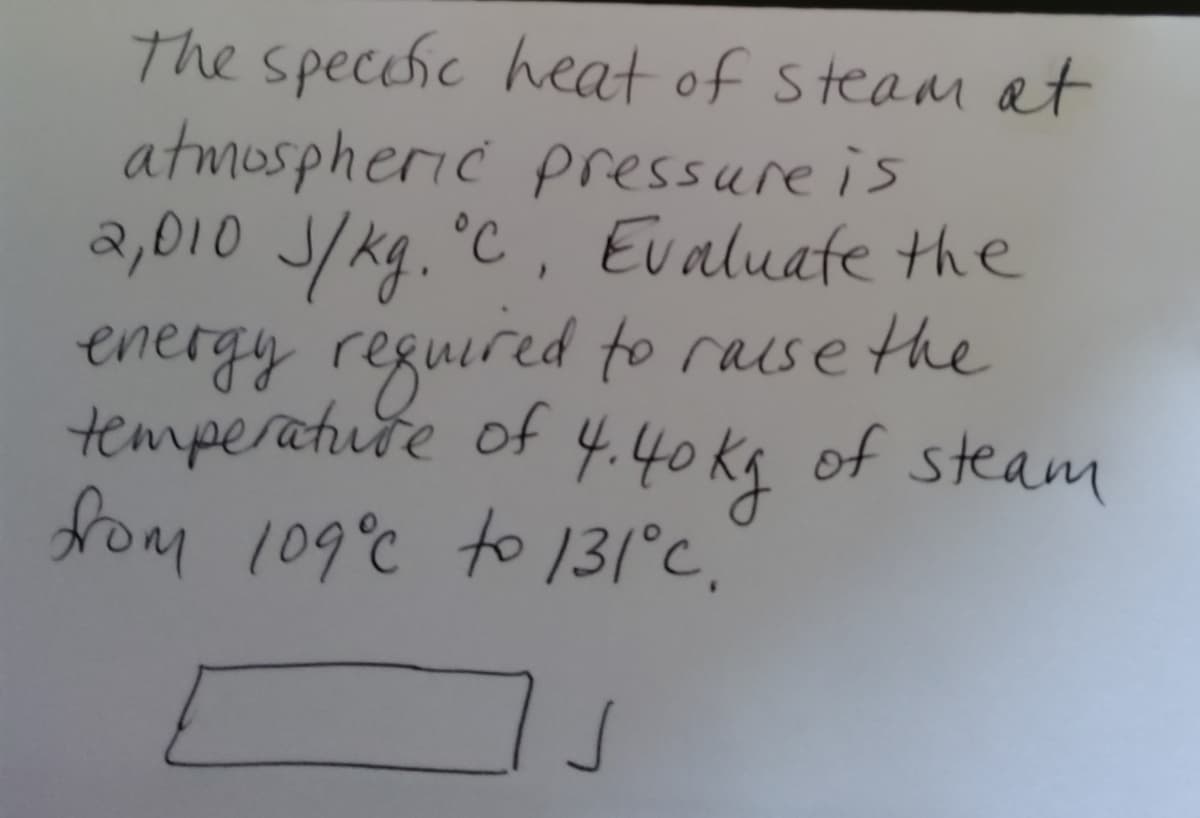 The specific heat of steam at
atmospheric pressure is
2,010 J/kg.°C. Evaluate the
energy required to raise the
temperature of 4.40kg of steam
from 109°c to 131°c.
J